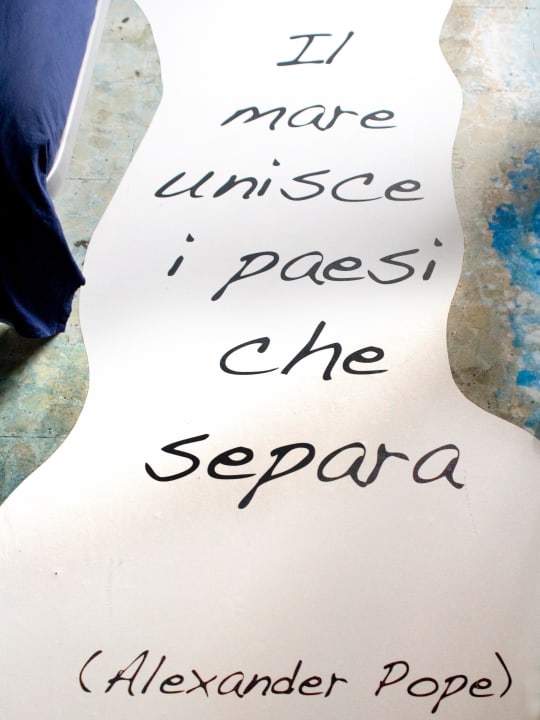 Il
mare
unisce
i paesi
che
separa
(Alexander Pope)